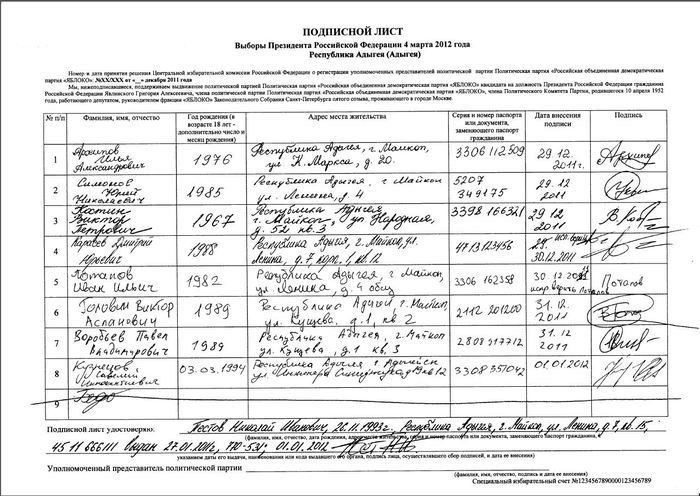 ПОДПИСНОЙ ЛИСТ
Выборы Президента Российской Федерации 4 марта 2012 года
Республика Адыгея (Адыгея)
Номер и дата принятия решения Центральной избирательной комиссии Российской Федерации о регистрации уполномоченных представителей политической партии Политическая партия «Российская объединенная демократическая
партия «ЯБЛОКО»: №XX/XXX от «__» декабря 2011 года
Мы, нижеподписавшиеся, поддерживаем выдвижение политической партией Политическая партия «Российская объединенная демократическая партия «ЯБЛОКО» кандидата на должность Президента Российской Федерации гражданина
Российской Федерации Явлинского Григория Алексеевича, члена политической партии Политическая партия «Российская объединенная демократическая партия «ЯБЛОКО», члена Политического Комитета Партии, родившегося 10 апреля 1952
года, работающего депутатом, руководителем фракции «ЯБЛОКО» Законодательного Собрания Санкт-Петербурга пятого созыва, проживающего в городе Москве.
№ п/п Фамилия, имя, отчество Год рождения (в возрасте 18 лет - дополнительно число и месяц рождения) Адрес места жительства Серия и номер паспорта или документа, заменяющего паспорт гражданина Дата внесения подписи Подпись
1 Архипов Илья Александрович 1976 Республика Адыгея, г. Майкоп, ул. К. Маркса, д. 20. 3306 112509 29.12.2011г. Архипов
2 Симонов Юрий Николаевич 1985 Республика Адыгея, г Майкоп ул. Ленина, д 4 5207 349175 29.12 2011
3 Костин Виктор Петрович 1967 Республика Адыгея, г. Майкоп, ул Народная, д. 52 кв. 3 3398 166321 29 12 2011
4 Дмитрий Юрьевич 1988 Республика Адыгея, г. Майкоп, ул. Ленина, д. 7 корп. 1, кв. 12 4713 123456 30.12.2011
5 Потапов Иван Ильич 1982 Республика Адыгея, г Майкоп, ул Ленина, д. 4 общ 3306 162358 30.12 2011 исправл. верить Потапов Потапов
6 Головин Виктор Асланович 1989 Республика Адыгея, г. Майкоп, ул. Кущева, д. 1, кв. 2 2112 201200 31.12. 2011
7 Воробьев Павел Владимирович 1989 Республика Адыгея, г. Майкоп ул. Кущева, д. 1 кв. 3 2808 317712 31.12 2011
8 Кузнецов Иннокентиевич 03.03.1994 Республика Адыгея г Адыгейск 3308 357042 01.01.2012
9
Подписной лист удостоверяю: Пестов Николай Иванович, 26.11.1993г., Республика Адыгея, г. Майкоп, ул. Ленина, д. 7, кв. 15,
(фамилия, имя, отчество, дата рождения, адрес места жительства, серия и номер паспорта или документа, заменяющего паспорт гражданина,
45 11 666111 выдан 27.01.2011г, 770-531; 01.01.2012
указанием даты его выдачи, наименования или кода выдавшего его органа, подпись лица, осуществлявшего сбор подписей, и дата ее внесения)
Уполномоченный представитель политической партии
(фамилия, имя, отчество, подпись и дата ее внесения)
Специальный избирательный счет №1234567890000123456789